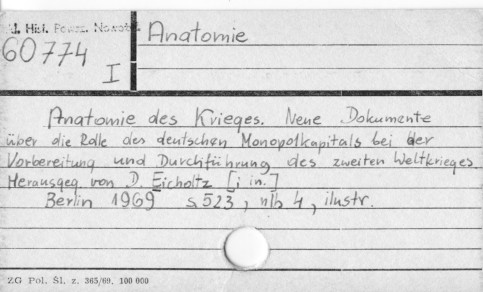 I. Hist. Powsz. Nowoż.
Anatomie
60774
I
Anatomie des Krieges. Neue Dokumente
über die Rolle des deutschen Monopolkapitals bei der
Vorbereitung und Durchführung des zweiten Weltkrieges
Herausgeg. von D. Eicholtz [i in.]
Berlin 1969 s. 523, nlb 4, ilustr.
ZG Pol. Śl. z. 365/69. 100 000